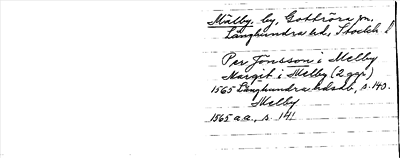 Mälby, by, Gottröra sn,
Långhundra hd, Stockh. l
Per Jönsson i Melby
Margit i Melby (2 ggr)
1565 Långhundra hdsdb, s. 140.
Melby
1565 a.a., s. 141